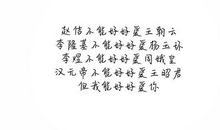 赵佶不能好好爱王朝云
李隆基不能好好爱杨玉环
李煜不能好好爱周娥皇
汉元帝不能好好爱王昭君
但我能好好爱你